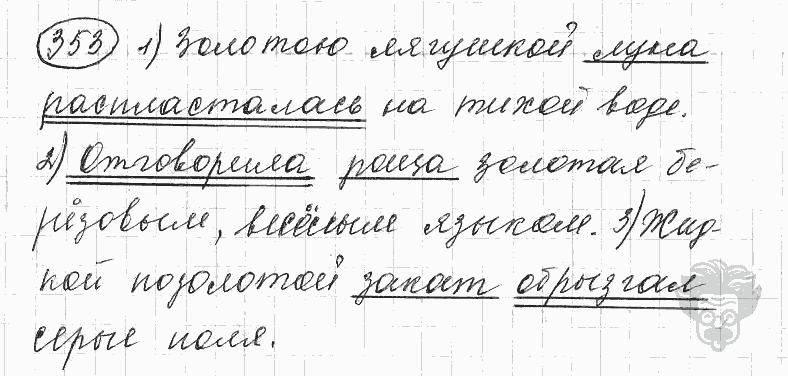 353 1) Золотою лягушкой луна
распласталась на тихой воде.
2) Отговорила роща золотая бе-
рёзовым, весёлым языком. 3) Жид-
кой позолотой закат обрызгал
серые поля.